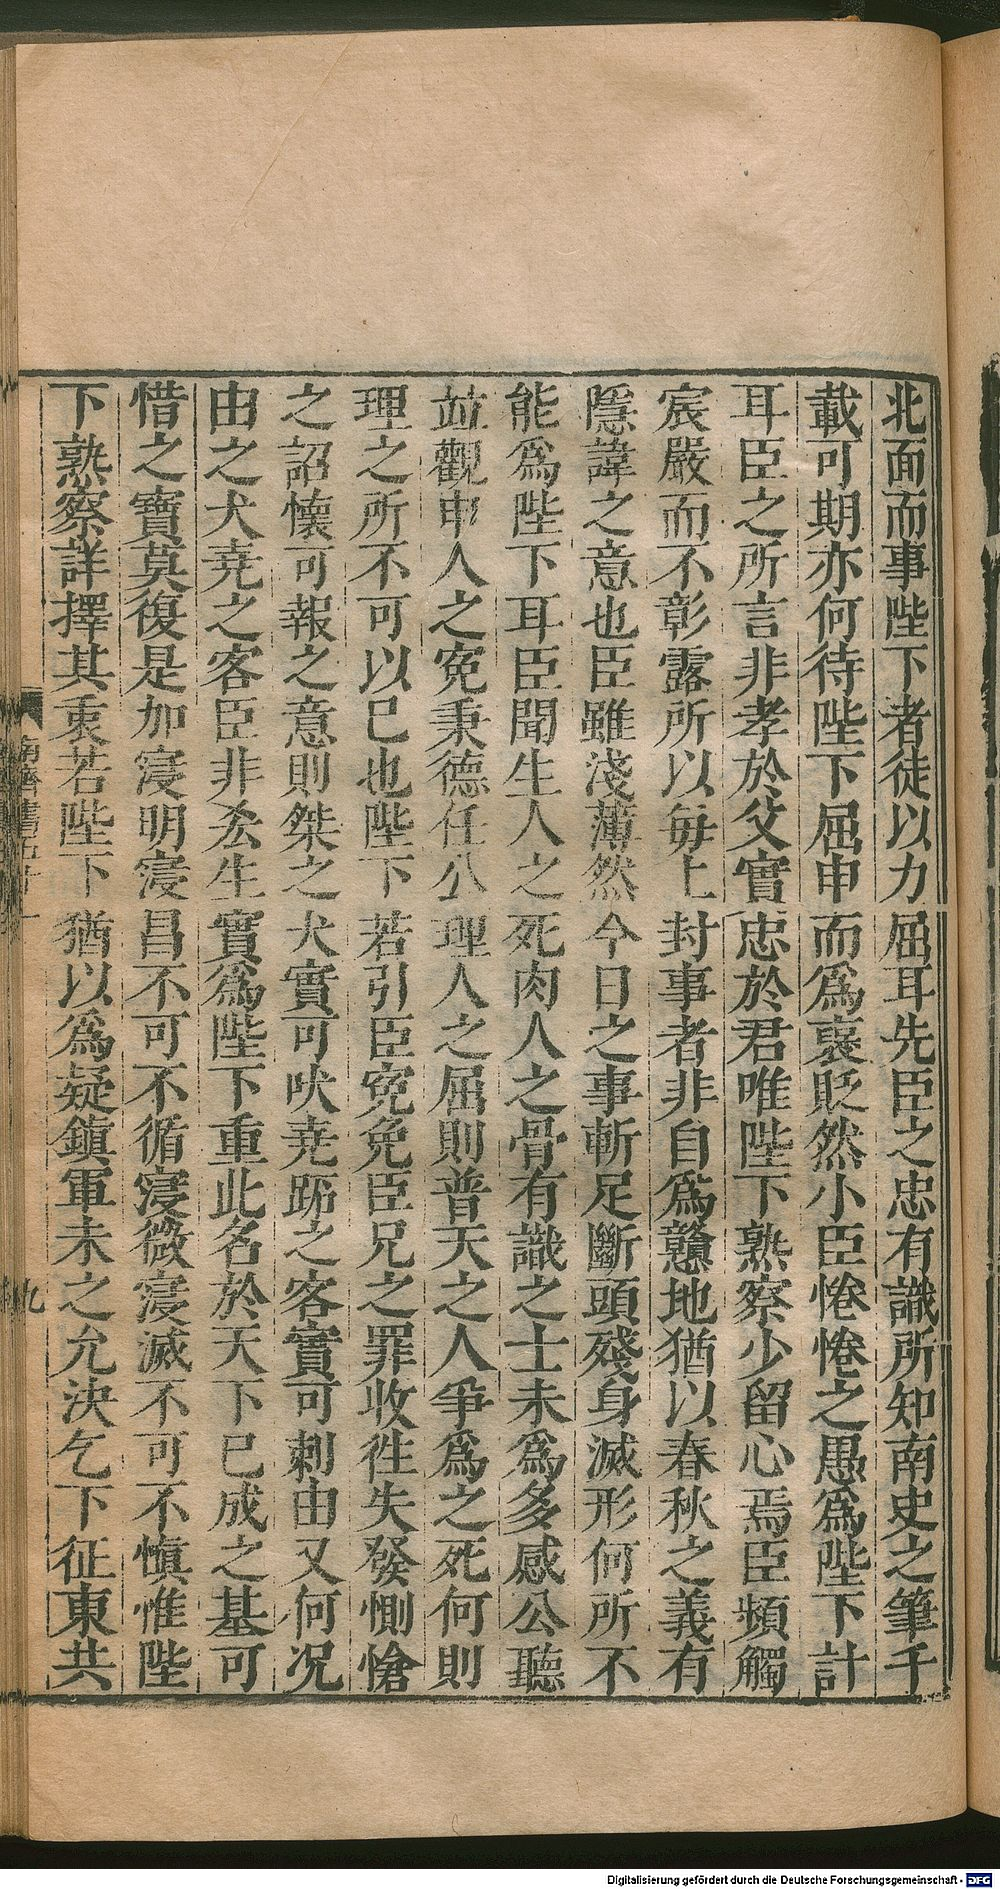 北面而事陛下者徒以力屈耳先臣之忠有識所知南史之筆千
載可期亦何待陛下屈申而爲襃貶然小臣惓惓之愚爲陛下計
耳臣之所言非孝於父實忠於君唯陛下熟察少留心焉臣頻觸
宸嚴而不彰露所以每上封事者非自爲戇地猶以春秋之義有
隱諱之意也臣雖淺薄然今日之事斬足斷頭殘身滅形何所不
能爲陛下耳臣聞生人之死肉人之骨有識之士未爲多感公聽
並觀申人之寃秉德任公理人之屈則普天之人爭爲之死何則
理之所不可以已也陛下若引臣寃免臣兄之罪收徃失發惻愴
之詔懷可報之意則桀之犬實可吠堯跖之客實可刺由又何况
由之犬堯之客臣非𠫤生實爲陛下重此名於天下已成之基可
惜之寶莫復是加寖明寖昌不可不循寖微寖滅不可不愼惟陛
下熟察詳擇其衷若陛下猶以爲疑鎭軍未之允決乞下征東共
南齊書五十
九
Digitalisierung gefördert durch die Deutsche Forschungsgemeinschaft - DFG